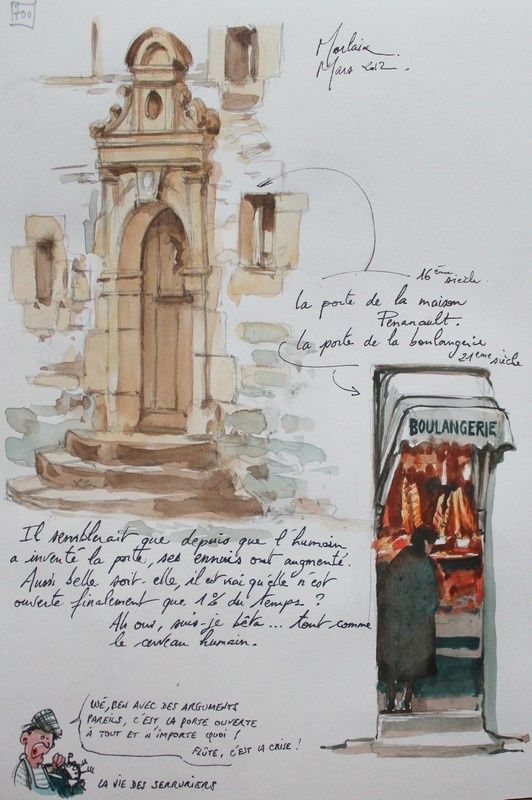 700
Morlaix.
Mars 2012.
16ème siècle.
la porte de la maison
Penanault.
la porte de la boulangerie
21eme siècle
BOULANGERIE
Il semblerait que depuis que l'humain
a inventé la porte, ses ennuis ont augmenté.
Aussi belle soit-elle, il est vrai qu'elle n'est
ouverte finalement que 1% du temps ?
Ah oui, suis-je bêta... tout comme
le cerveau humain.
WÉ, BEN AVEC DES ARGUMENTS
PAREILS, C'EST LA PORTE OUVERTE
À TOUT ET N'IMPORTE QUOI !
FLÛTE, C'EST LA CRISE !
LA VIE DES SERRURIERS